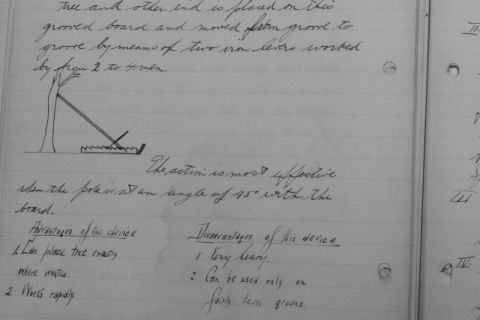 tree and other end is placed on this
grooved board and moved from groove to
groove by means of two iron levers worked
by from 2 to 4 men.
The action is most effective
when the pole is at an angle of 45° with the
board.
Advantages of this device
1. Can place tree exactly
where wanted.
2. Works rapidly
Disadvantages of this device
1. Very heavy.
2. Can be used only on
fairly level ground.
II.
III
IV.